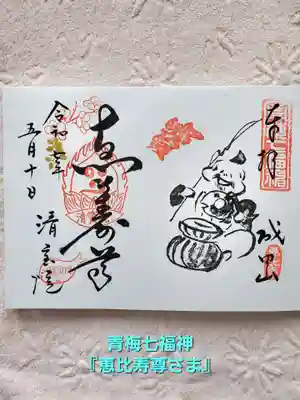 奉拝
成田山
恵比寿尊
清宝院
令和七年
五月十日
青梅七福神
『恵比寿尊さま』